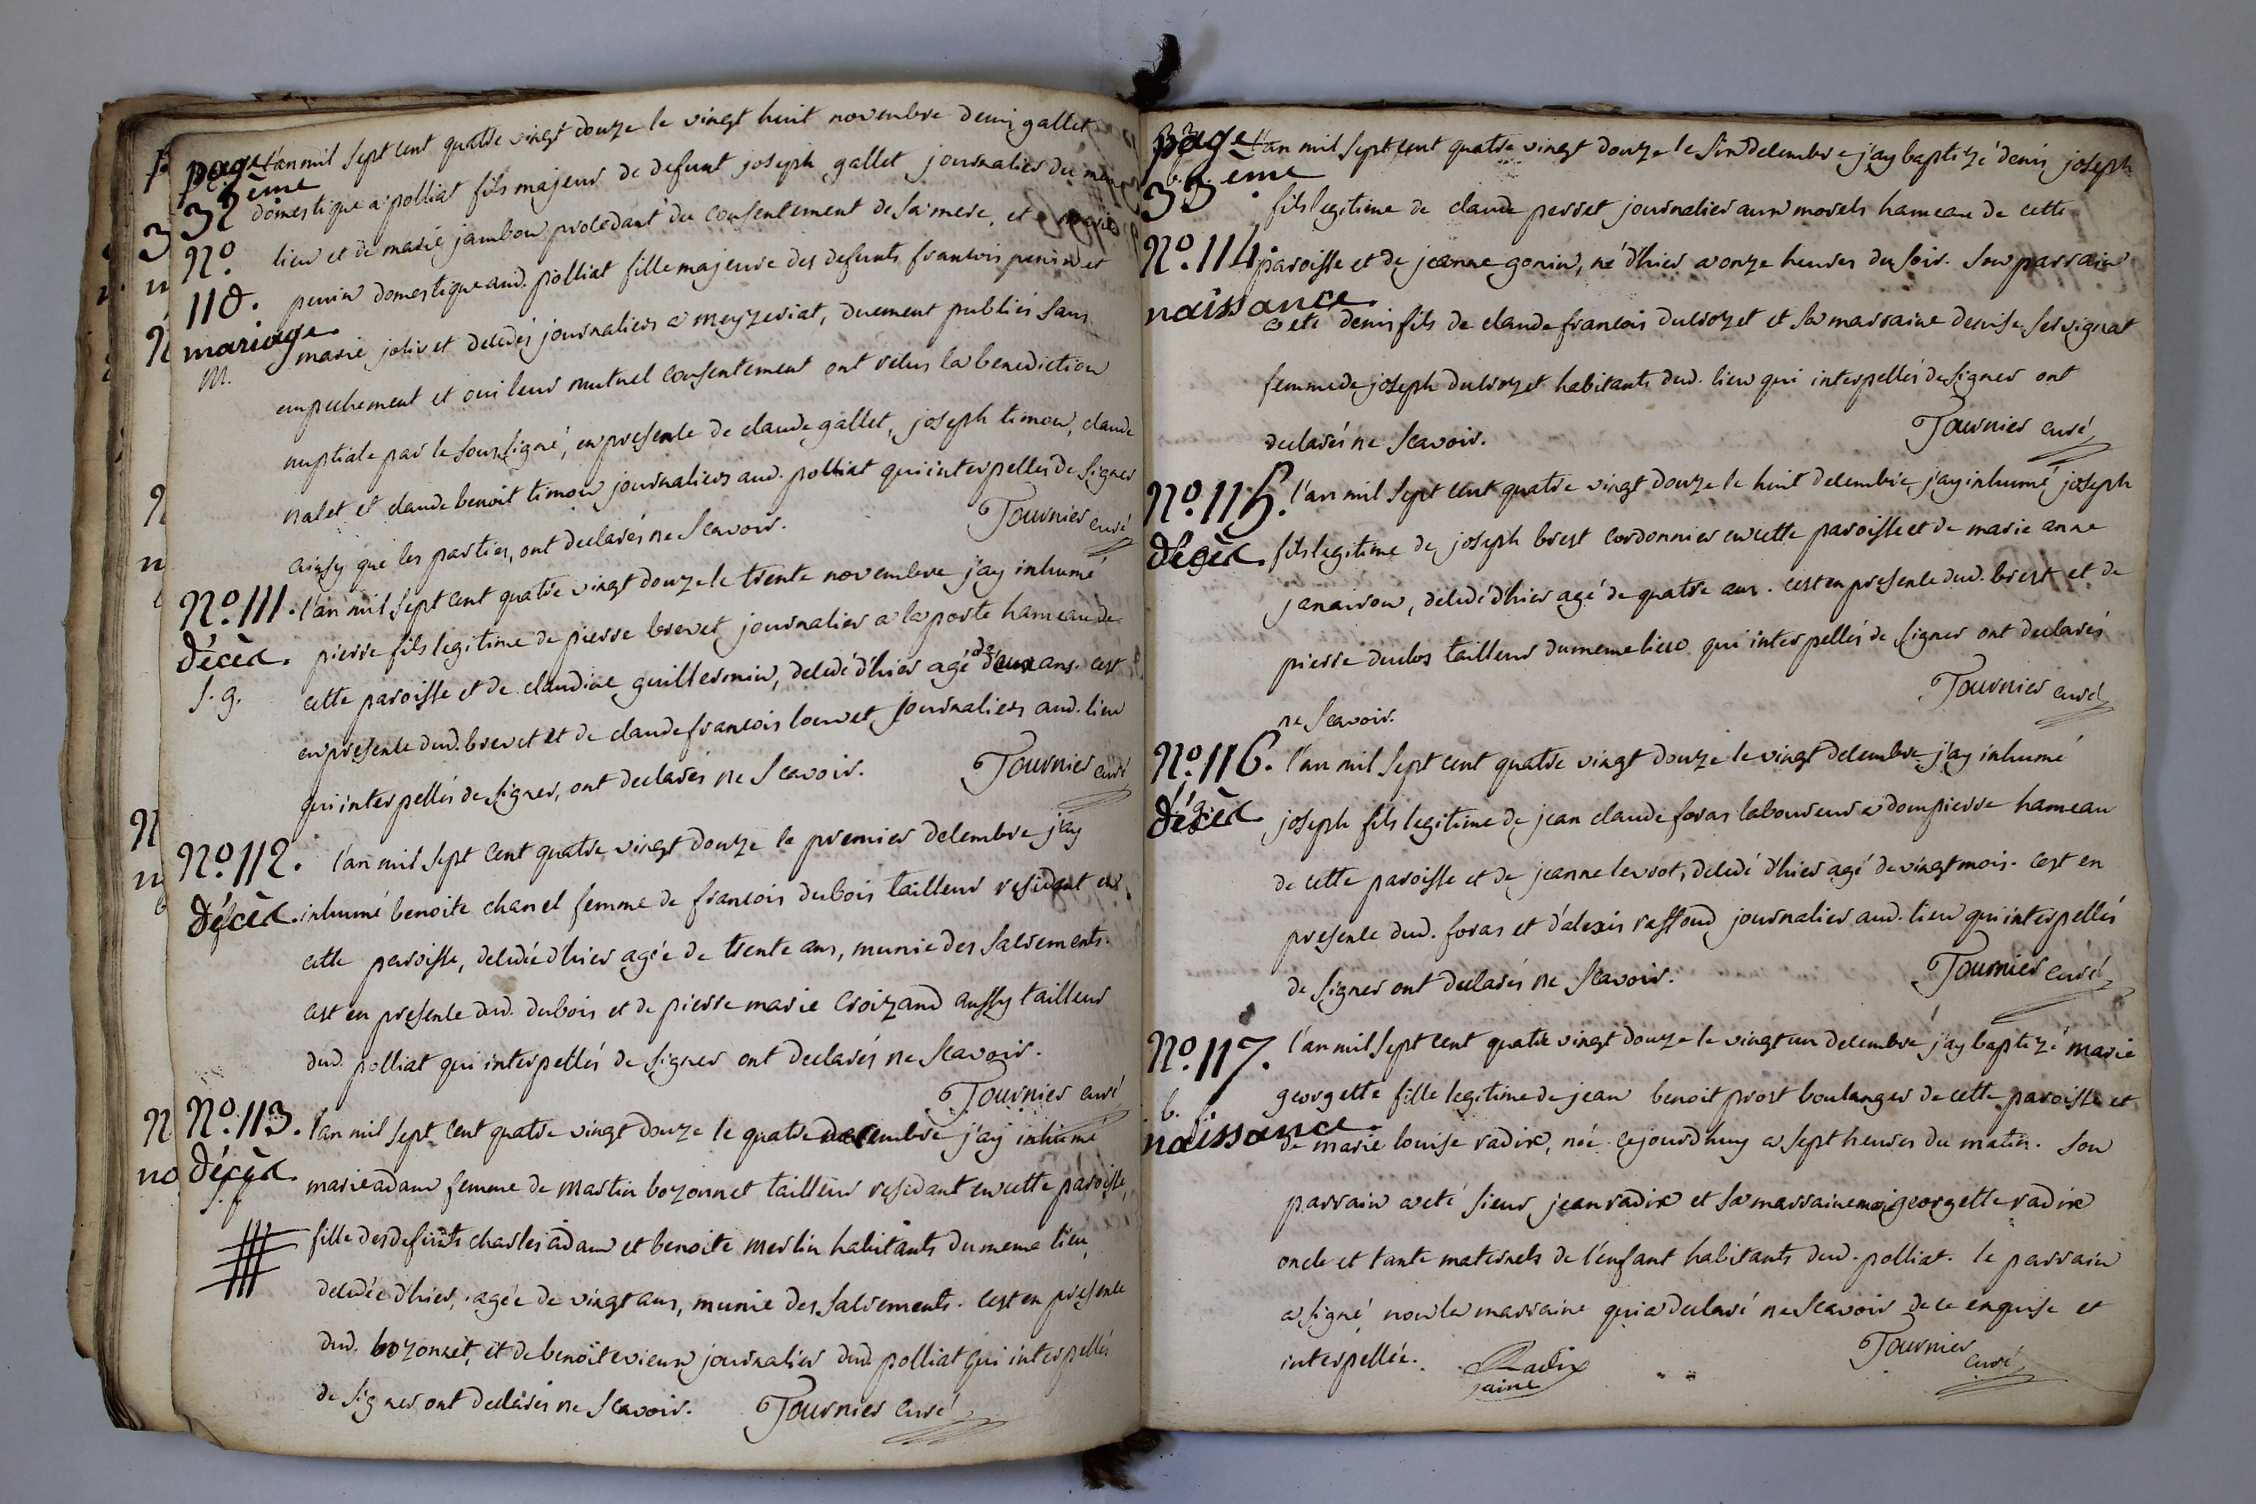 page 32eme
l'an mil sept cent quatre vingt douze le vingt huit novembre denis gallet
domestique a polliat fils majeur de defunt joseph gallet journalier du meme
lieu et de marie jambon procedant du consentement de sa mere, et marie
No 110. mariage. m.
perrin domestique aud. polliat fille majeure des defunts francois perrin et
marie jolivet decedés journaliers a meyzeriat, duement publiés sans
empechement et oui leur mutuel consentement ont recus la benediction
nuptiale par le soussigné, en presence de claude gallet, joseph timon, claude
nalet et claude benoit timon journaliers aud. polliat qui interpellés de signer
ainsy que les parties, ont declarés ne scavoir. Tournier curé
No. 111. l'an mil sept cent quatre vingt douze le trente novembre j'ay inhumé
décèd. pierre fils legitime de pierre brevet journalier a la poste hameau de
s. g. cette paroisse et de claudine guillermin, decedé d'hier agé de deux ans. c'est
en presence dud. brevet et de claude francois louvet journaliers aud. lieu
qui interpellés de signer, ont declarés ne scavoir. Tournier curé
No. 112. l'an mil sept cent quatre vingt douze le premier decembre j'ay
décèd. inhumé benoite chanel femme de francois dubois tailleur residant en
cette paroisse, decedée d'hier agée de trente ans, munie des sacrements.
c'est en presence dud. dubois et de pierre marie croizand aussy tailleur
dud. polliat qui interpellés de signer ont declarés ne scavoir.
Tournier curé
No. 113. l'an mil sept cent quatre vingt douze le quatre decembre j'ay inhumé
décèd. marie adam femme de martin bozonnet tailleur residant en cette paroisse,
fille des defunts charles adam et benoite merlin habitants du meme lieu,
decedée d'hier, agée de vingt ans, munie des sacrements. c'est en presence
dud. bozonnet, et de benoit vieux journalier dud polliat qui interpellés
de signer ont declarés ne scavoir. Tournier curé
page 33.eme
l'an mil sept cent quatre vingt douze le six decembre j'ay baptizé denis joseph
b. fils legitime de claude perret journalier aux morels hameau de cette
No. 114. paroisse et de jeanne gonin, né d'hier a onze heures du soir. son parrain
naissance. a eté denis fils de claude francois ducrozet et sa marraine denise servignat
femme de joseph ducrozet habitants dud. lieu qui interpellés de signer ont
declarés ne scavoir. Tournier curé
No. 115. l'an mil sept cent quatre vingt douze le huit decembre j'ay inhumé joseph
décèd. fils legitime de joseph brest cordonnier en cette paroisse et de marie anne
janairon, decedé d'hier agé de quatre ans. c'est en presence dud. brest et de
pierre duclos tailleur du meme lieu qui interpellés de signer ont declarés
ne scavoir. Tournier curé
No. 116. l'an mil sept cent quatre vingt douze le vingt decembre j'ay inhumé
décèd joseph fils legitime de jean claude foras laboureur a dompierre hameau
de cette paroisse et de jeanne levrot, decedé d'hier agé de vingt mois. c'est en
presence dud. foras et d'alexis raffoud journalier aud. lieu qui interpellés
de signer ont declarés ne scavoir. Tournier curé
No. 117. l'an mil sept cent quatre vingt douze le vingt un decembre j'ay baptizé marie
b. f. georgette fille legitime de jean benoit prost boulanger de cette paroisse et
naissance. de marie louise radix, née cejourd'huy a sept heures du matin. son
parrain a eté sieur jean radix et sa marraine marie georgette radix
oncle et tante maternels de l'enfant habitants dud. polliat. le parrain
a signé, non la marraine qui a declaré ne scavoir de ce enquise et
interpellée. Radix Tournier
curé